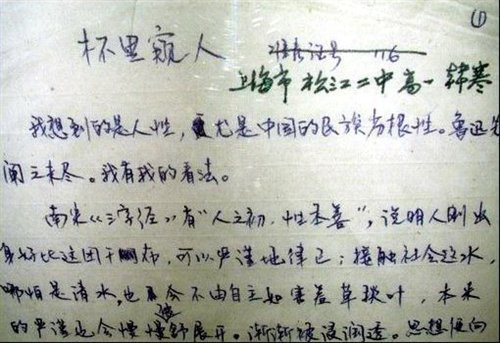 ①
杯里窥人 准考证号 116
上海市松江二中高一 韩寒
我想到的是人性，尤是中国的民族劣根性。鲁迅先
阐之未尽。我有我的看法。
南宋《三字经》有“人之初，性本善”，说明人刚出
身好比这团干布，可以严谨地律己；接触社会这水，
哪怕是清水，也会不由自主如害羞草敛叶，本来
的严谨也会慢慢舒展开。渐渐被浸润透。思想便向